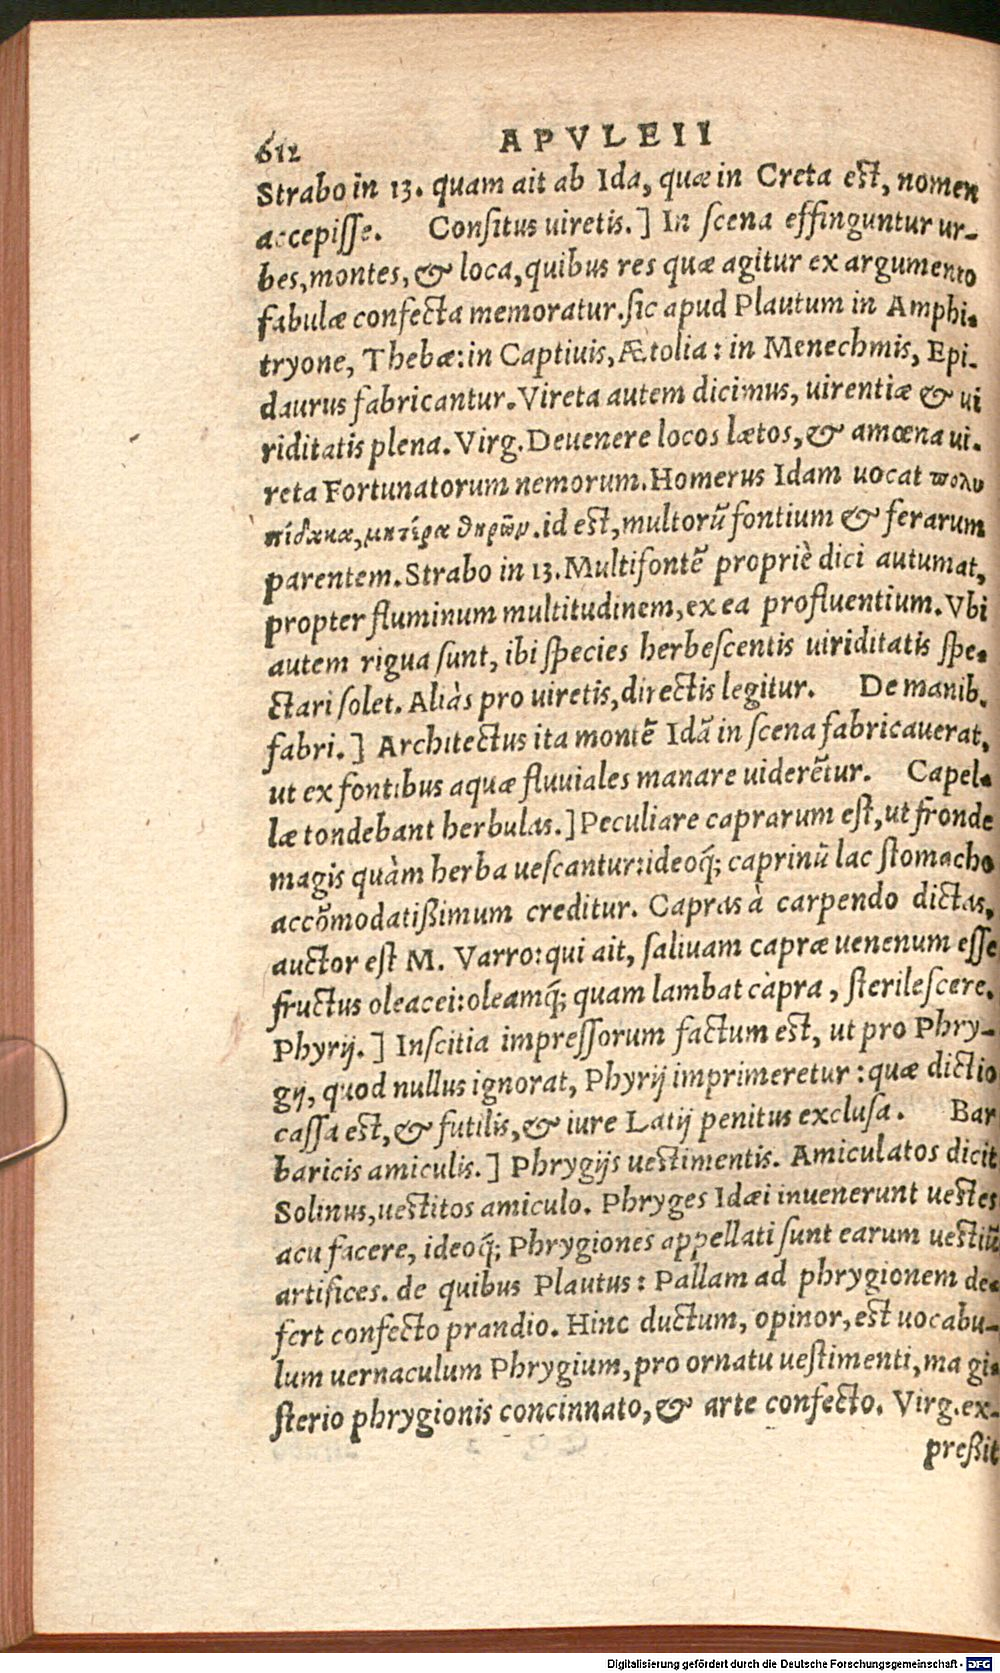 612 APVLEII
Strabo in 13. quam ait ab Ida, quæ in Creta est, nomen
accepisse. Consitus uiretis.] In scena effinguntur ur-
bes, montes, & loca, quibus res quæ agitur ex argumento
fabulæ confecta memoratur. sic apud Plautum in Amphi-
tryone, Thebæ: in Captiuis, Ætolia: in Menechmis, Epi-
daurus fabricantur. Vireta autem dicimus, uirentiæ & ui
riditatis plena. Virg. Deuenere locos lætos, & amœna ui-
reta Fortunatorum nemorum. Homerus Idam uocat πολυ
πίδακα, μητέρα θηρῶν. id est, multorũ fontium & ferarum
parentem. Strabo in 13. Multifontẽ propriè dici autumat,
propter fluminum multitudinem, ex ea profluentium. Vbi
autem rigua sunt, ibi species herbescentis uiriditatis spe-
ctari solet. Aliàs pro uiretis, directis legitur. De manib.
fabri.] Architectus ita montẽ Idã in scena fabricauerat,
ut ex fontibus aquæ fluuiales manare uiderẽtur. Capel-
læ tondebant herbulas.] Peculiare caprarum est, ut fronde
magis quàm herba uescantur: ideoq́; caprinũ lac stomacho
accõmodatißimum creditur. Capras à carpendo dictas,
auctor est M. Varro: qui ait, saliuam capræ uenenum esse
fructus oleacei: oleamq́; quam lambat càpra, sterilescere.
Phyrij.] Inscitia impressorum factum est, ut pro Phry-
gij, quod nullus ignorat, Phyrij imprimeretur: quæ dictio
cassa est, & futilis, & iure Latij penitus exclusa. Bar
baricis amiculis.] Phrygijs uestimentis. Amiculatos dicit
Solinus, uestitos amiculo. Phryges Idæi inuenerunt uestes
acu facere, ideoq́; Phrygiones appellati sunt earum uestiũ
artifices. de quibus Plautus: Pallam ad phrygionem de-
fert confecto prandio. Hinc ductum, opinor, est uocabu-
lum uernaculum Phrygium, pro ornatu uestimenti, ma gi-
sterio phrygionis concinnato, & arte confecto. Virg. ex-
preßit
Digitalisierung gefördert durch die Deutsche Forschungsgemeinschaft - DFG